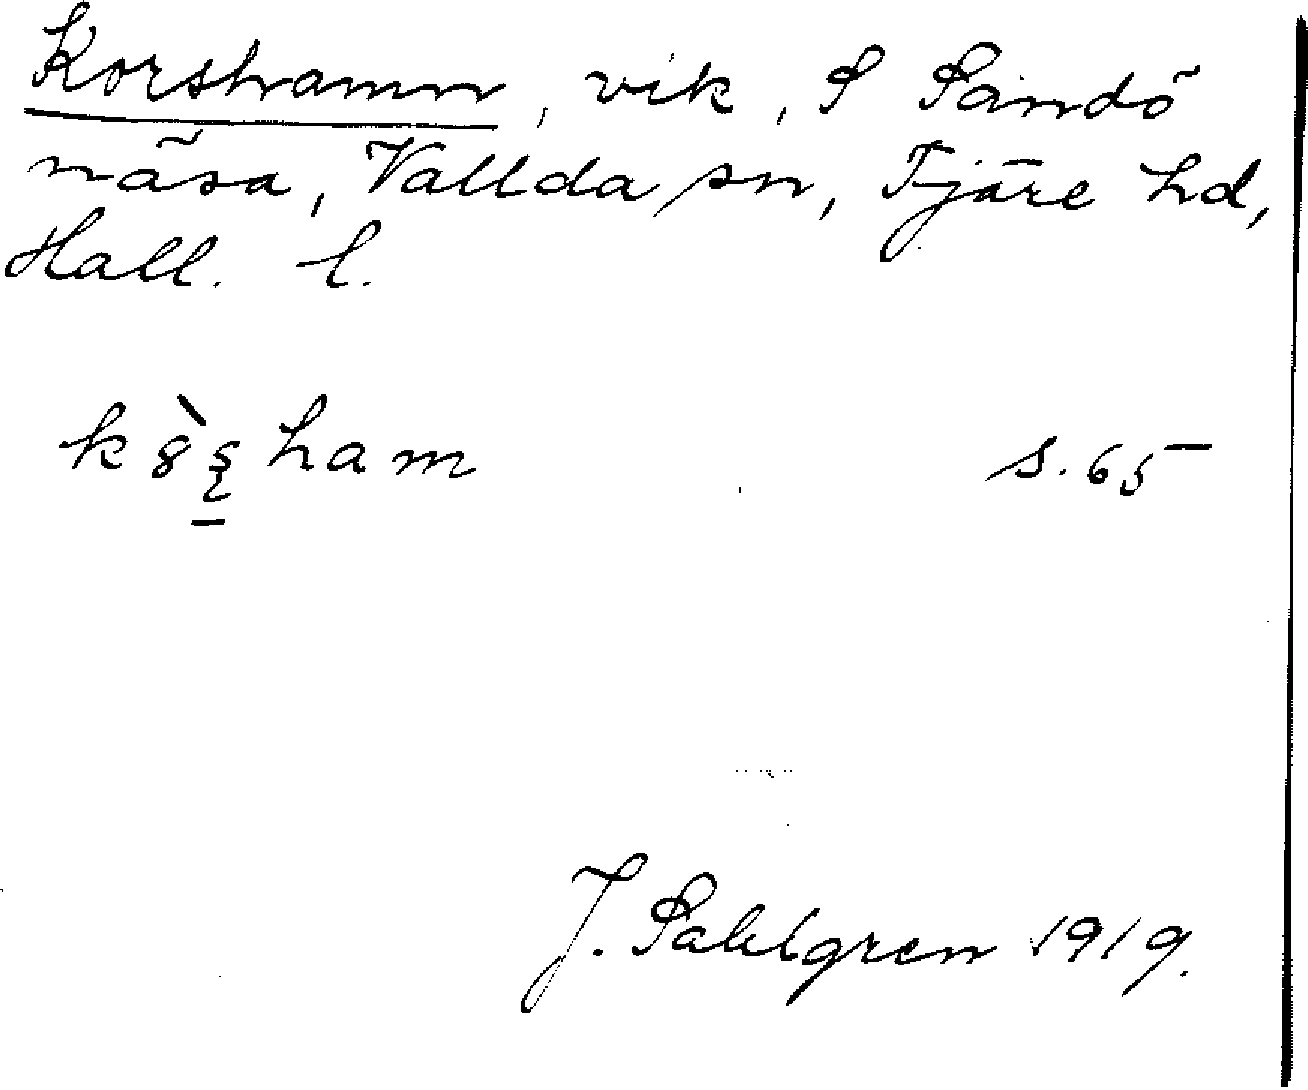 Korshamn, vik, S Sandö
näsa, Vallda sn, Fjäre hd,
Hall. l.
ham s. 65
J. Sahlgren 1919.